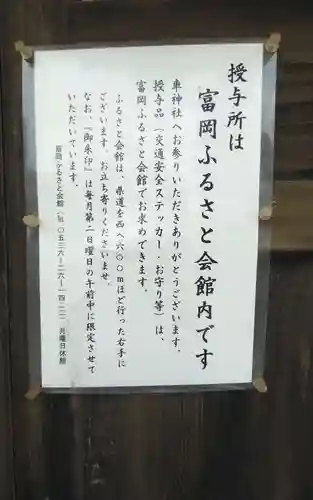 授与所は
富岡ふるさと会館内です
車神社へお参りいただきありがとうございます。
授与品(交通安全ステッカー・お守り等)は、
富岡ふるさと会館でお求めできます。
ふるさと会館は、県道を西へ六〇〇mほど行った右手に
ございます。お立ち寄りくださいませ。
なお、『御朱印』は毎月第二日曜日の午前中に限定させて
いただいています。
富岡ふるさと会館(℡〇五三六-二六-一四二二 月曜日休館